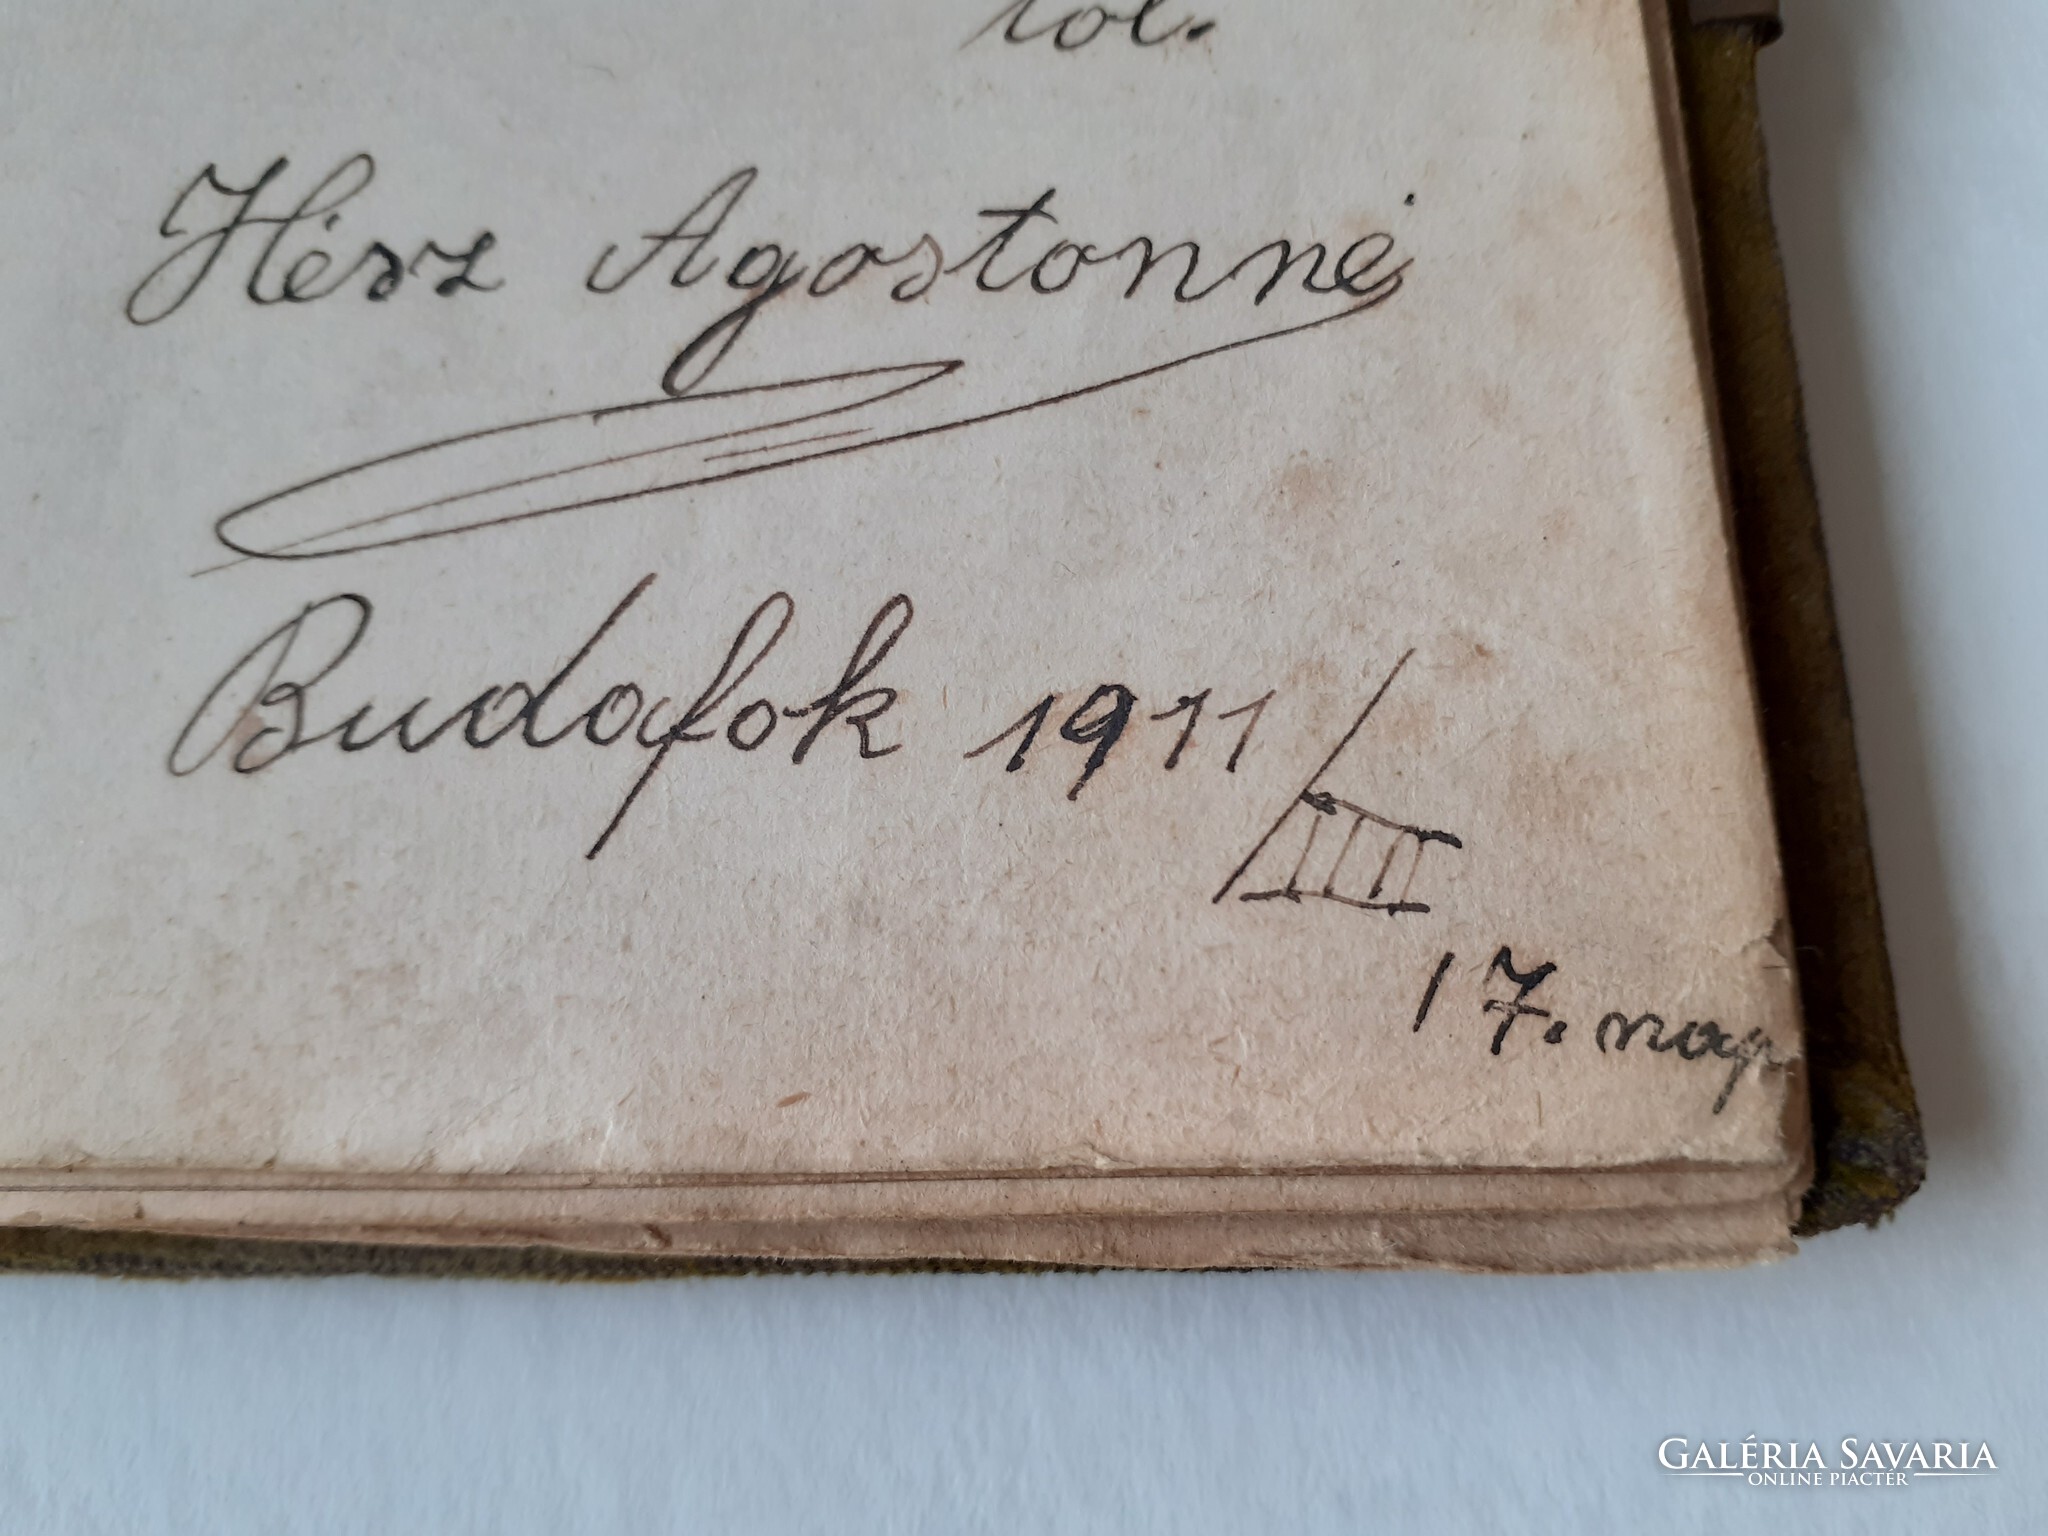 tol.
Hész Agostonné
Budafok 1911/III
17. nap
GALÉRIA SAVARIA
ONLINE PIACTÉR